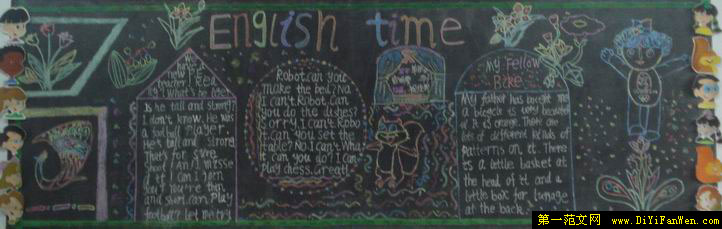 English time
Is he tall and strong?
I don't know. He was
a football player.
He's tall and strong
That's for sure
and short. can play
football? Let me try
Robot, can you
make the bed? No
I can't. Robot, can
you do the dishes?
Sorry I can't. Robo
t, can you set the
table? No. I can't. Wha
t can you do? I can
Play chess. Great!
My Fellow
Bike
My father has bought me
a bicycle is very beautiful
It is orange. There are
lots of different kinds of
patterns on it. There
is a little basket at
the head of it and a
little box for lunage
at the back.
第一范文网 www.DiYiFanWen.com